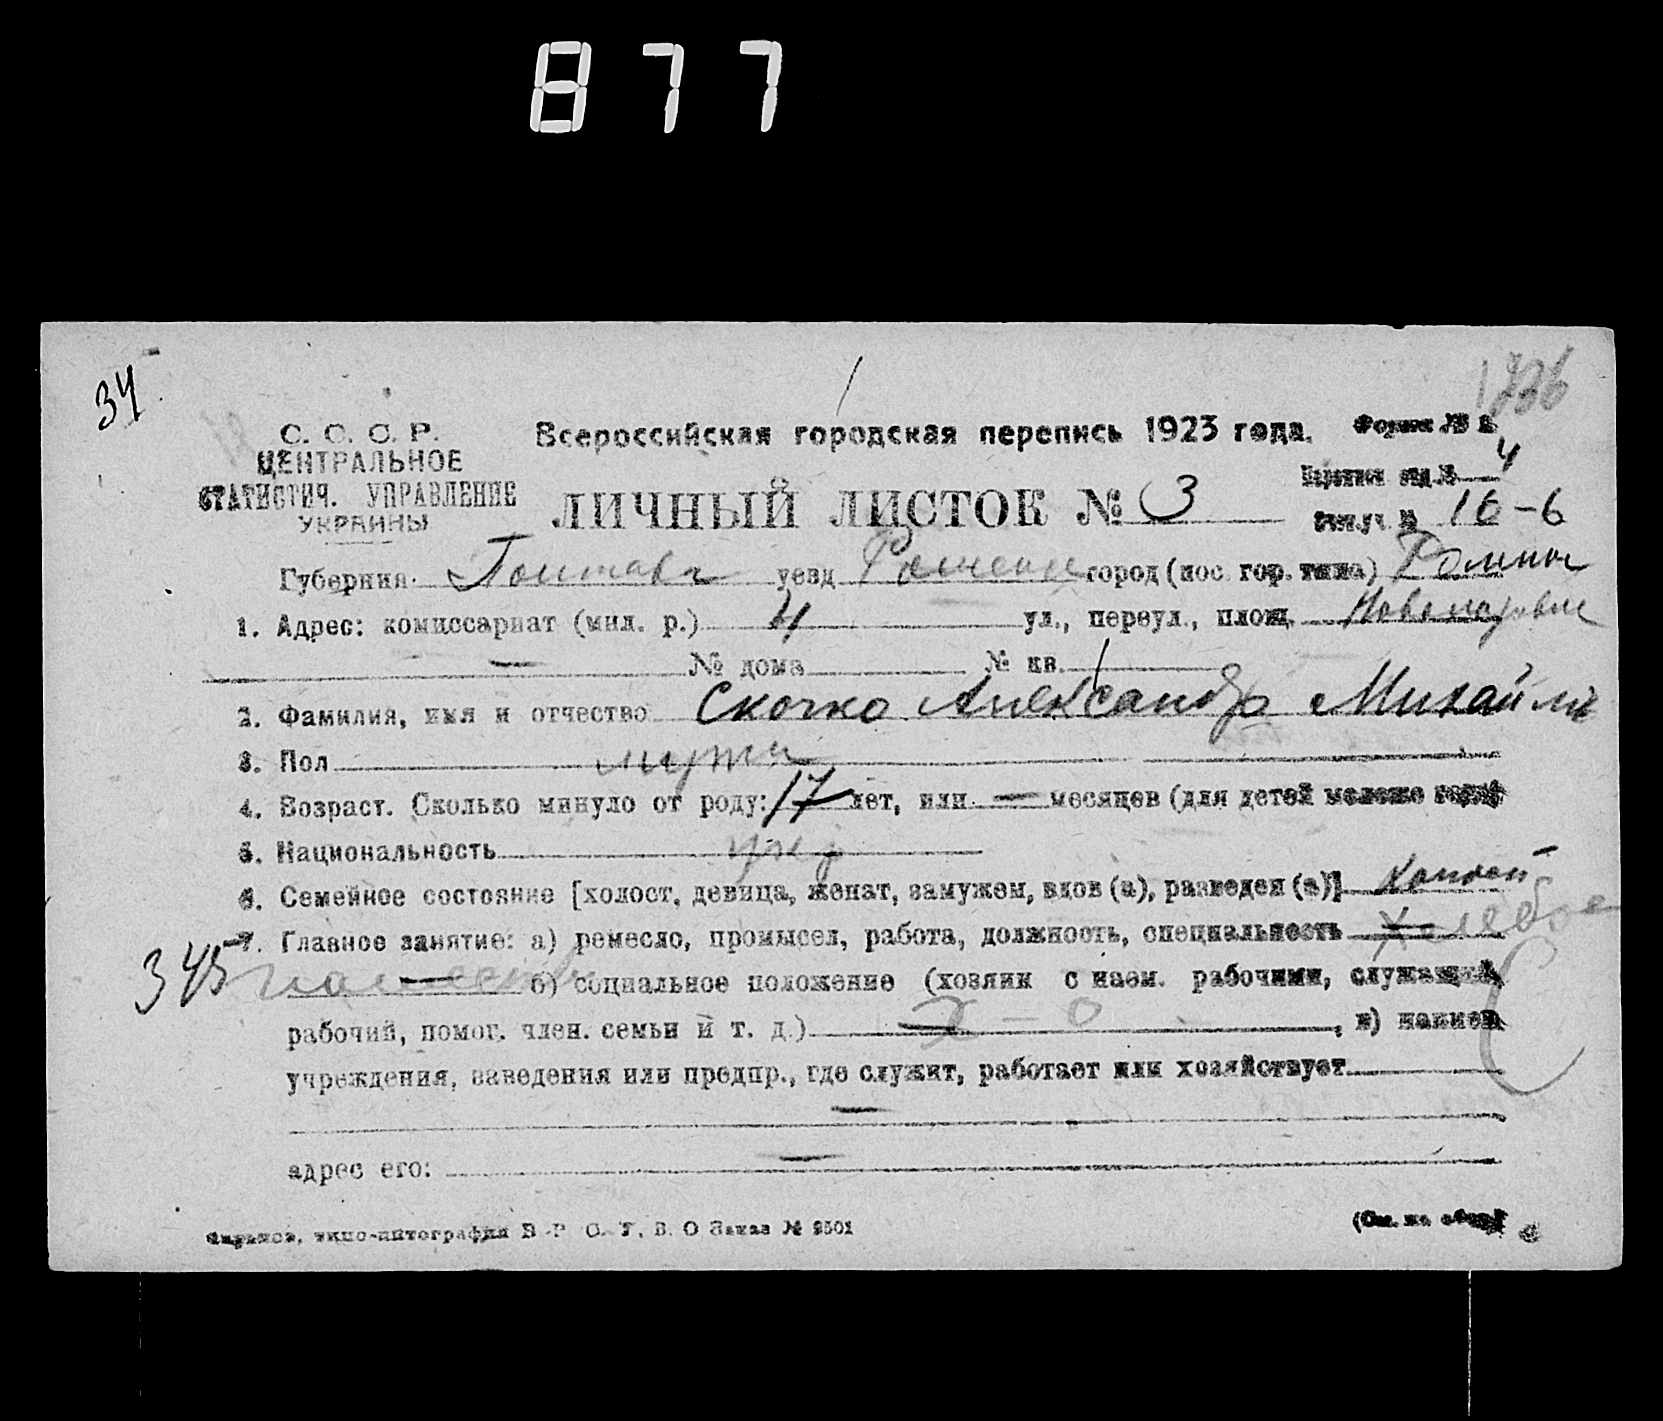 877
34
1736
С. С. С. Р.
ЦЕНТРАЛЬНОЕ
СТАТИСТИЧ. УПРАВЛЕНИЕ
УКРАИНЫ
Всероссийская городская перепись 1923 года.
Форма № 2
4
ЛИЧНЫЙ ЛИСТОК № 3
16-6
Губерния Полтавс уезд Роменск город (пос. гор. типа) Ромны
1. Адрес: комиссариат (мил. р.) 4 ул., переул., площ.
№ дома № кв.
2. Фамилия, имя и отчество Скочко Александр Михайлов
3. Пол мужи
4. Возраст. Сколько минуло от роду: 17 лет, или — месяцев (для детей моложе года)
5. Национальность укр
6. Семейное состояние [холост, девица, женат, замужем, вдов (а), разведен (а)] Холост
7. Главное занятие: а) ремесло, промысел, работа, должность, специальность
345 б) социальное положение (хозяин с наем. рабочими, служащий,
рабочий, помог. член. семьи и т. д.) Х - о, в) наимен.
учреждения, заведения или предпр., где служит, работает или хозяйствует
—
адрес его: —
Харьков, типо-литография В. Р. С. У. В. О Заказ № 2501
(См. на обор.)